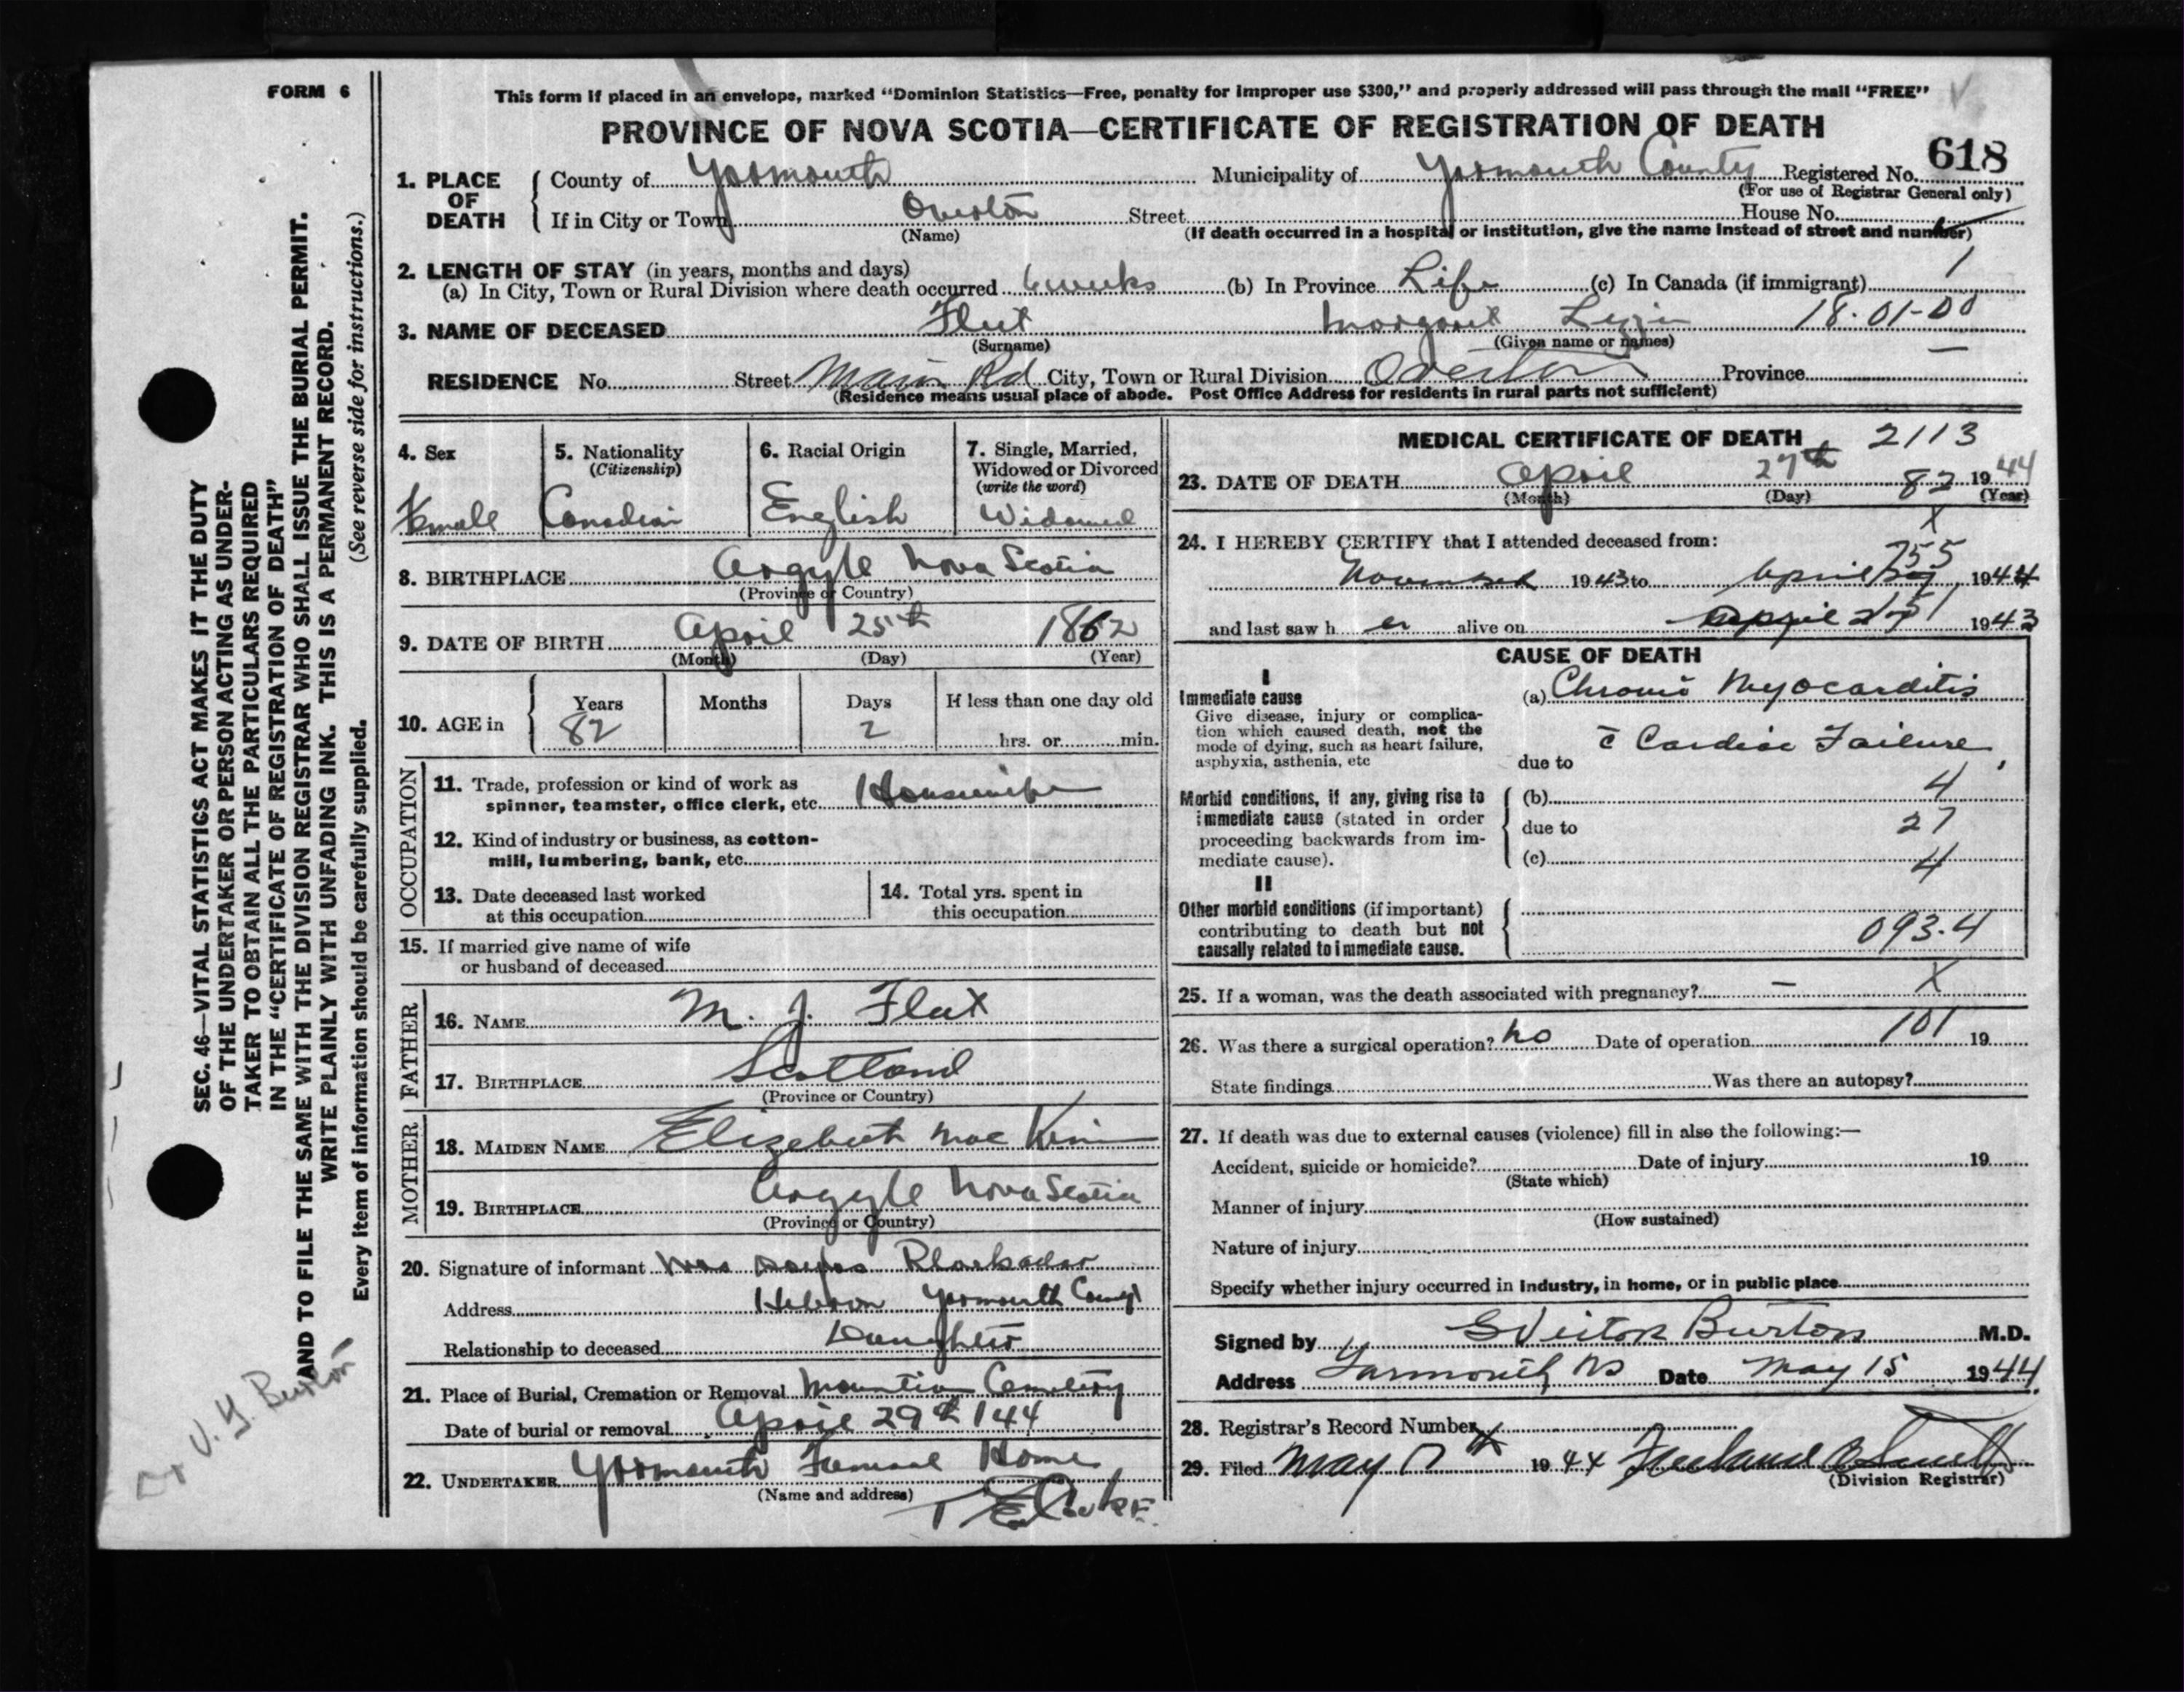 FORM 6
This form if placed in an envelope, marked "Dominion Statistics—Free, penalty for improper use $300," and properly addressed will pass through the mail "FREE"
PROVINCE OF NOVA SCOTIA—CERTIFICATE OF REGISTRATION OF DEATH
618
1. PLACE OF DEATH
County of Yarmouth Municipality of Yarmouth County Registered No.
(For use of Registrar General only)
If in City or Town Overton Street House No.
(Name) (If death occurred in a hospital or institution, give the name instead of street and number)
2. LENGTH OF STAY (in years, months and days)
(a) In City, Town or Rural Division where death occurred 6 weeks (b) In Province Life (c) In Canada (if immigrant) 1
3. NAME OF DECEASED Fleet Margaret 18·01-00
(Surname) (Given name or names)
RESIDENCE No. Street Main Rd City, Town or Rural Division Overton Province
(Residence means usual place of abode. Post Office Address for residents in rural parts not sufficient)
4. Sex
Female
5. Nationality
(Citizenship)
Canadian
6. Racial Origin
English
7. Single, Married,
Widowed or Divorced
(write the word)
Widowed
8. BIRTHPLACE Argyle Nova Scotia
(Province or Country)
9. DATE OF BIRTH April 25th 1862
(Month) (Day) (Year)
10. AGE in Years Months Days If less than one day old
82 2 hrs. or min.
OCCUPATION
11. Trade, profession or kind of work as
spinner, teamster, office clerk, etc. Housewife
12. Kind of industry or business, as cotton-
mill, lumbering, bank, etc.
13. Date deceased last worked
at this occupation
14. Total yrs. spent in
this occupation
15. If married give name of wife
or husband of deceased
FATHER
16. NAME M. J. Fleet
17. BIRTHPLACE Scotland
(Province or Country)
MOTHER
18. MAIDEN NAME Elizebeth Mac
19. BIRTHPLACE Argyle Nova Scotia
(Province or Country)
20. Signature of informant Mrs Blackadar
Address Hebron Yarmouth County
Relationship to deceased Daughter
21. Place of Burial, Cremation or Removal Cemetery
Date of burial or removal April 29th 144
22. UNDERTAKER Yarmouth Funeral Home
(Name and address)
MEDICAL CERTIFICATE OF DEATH 2113
23. DATE OF DEATH April 27th 82 1944
(Month) (Day) (Year)
X
24. I HEREBY CERTIFY that I attended deceased from:
755
November 1943 to April 1944
and last saw her alive on April 1943
CAUSE OF DEATH
I
Immediate cause
Give disease, injury or complica-
tion which caused death, not the
mode of dying, such as heart failure,
asphyxia, asthenia, etc
(a) Chronic Myocarditis
c̄ Cardiac Failure
due to
Morbid conditions, if any, giving rise to
immediate cause (stated in order
proceeding backwards from im-
mediate cause).
(b) 4
due to 27
(c) 4
II
Other morbid conditions (if important)
contributing to death but not
causally related to immediate cause.
093.4
25. If a woman, was the death associated with pregnancy? – X
26. Was there a surgical operation? No Date of operation 101 19
State findings Was there an autopsy?
27. If death was due to external causes (violence) fill in also the following:—
Accident, suicide or homicide? Date of injury 19
(State which)
Manner of injury
(How sustained)
Nature of injury
Specify whether injury occurred in industry, in home, or in public place
Signed by Burton M.D.
Address Yarmouth NS Date May 15 1944
28. Registrar's Record Number
29. Filed May 1944
(Division Registrar)
SEC. 46—VITAL STATISTICS ACT MAKES IT THE DUTY
OF THE UNDERTAKER OR PERSON ACTING AS UNDER-
TAKER TO OBTAIN ALL THE PARTICULARS REQUIRED
IN THE "CERTIFICATE OF REGISTRATION OF DEATH"
AND TO FILE THE SAME WITH THE DIVISION REGISTRAR WHO SHALL ISSUE THE BURIAL PERMIT.
WRITE PLAINLY WITH UNFADING INK. THIS IS A PERMANENT RECORD.
Every item of information should be carefully supplied. (See reverse side for instructions.)
Dr V. G. Burton